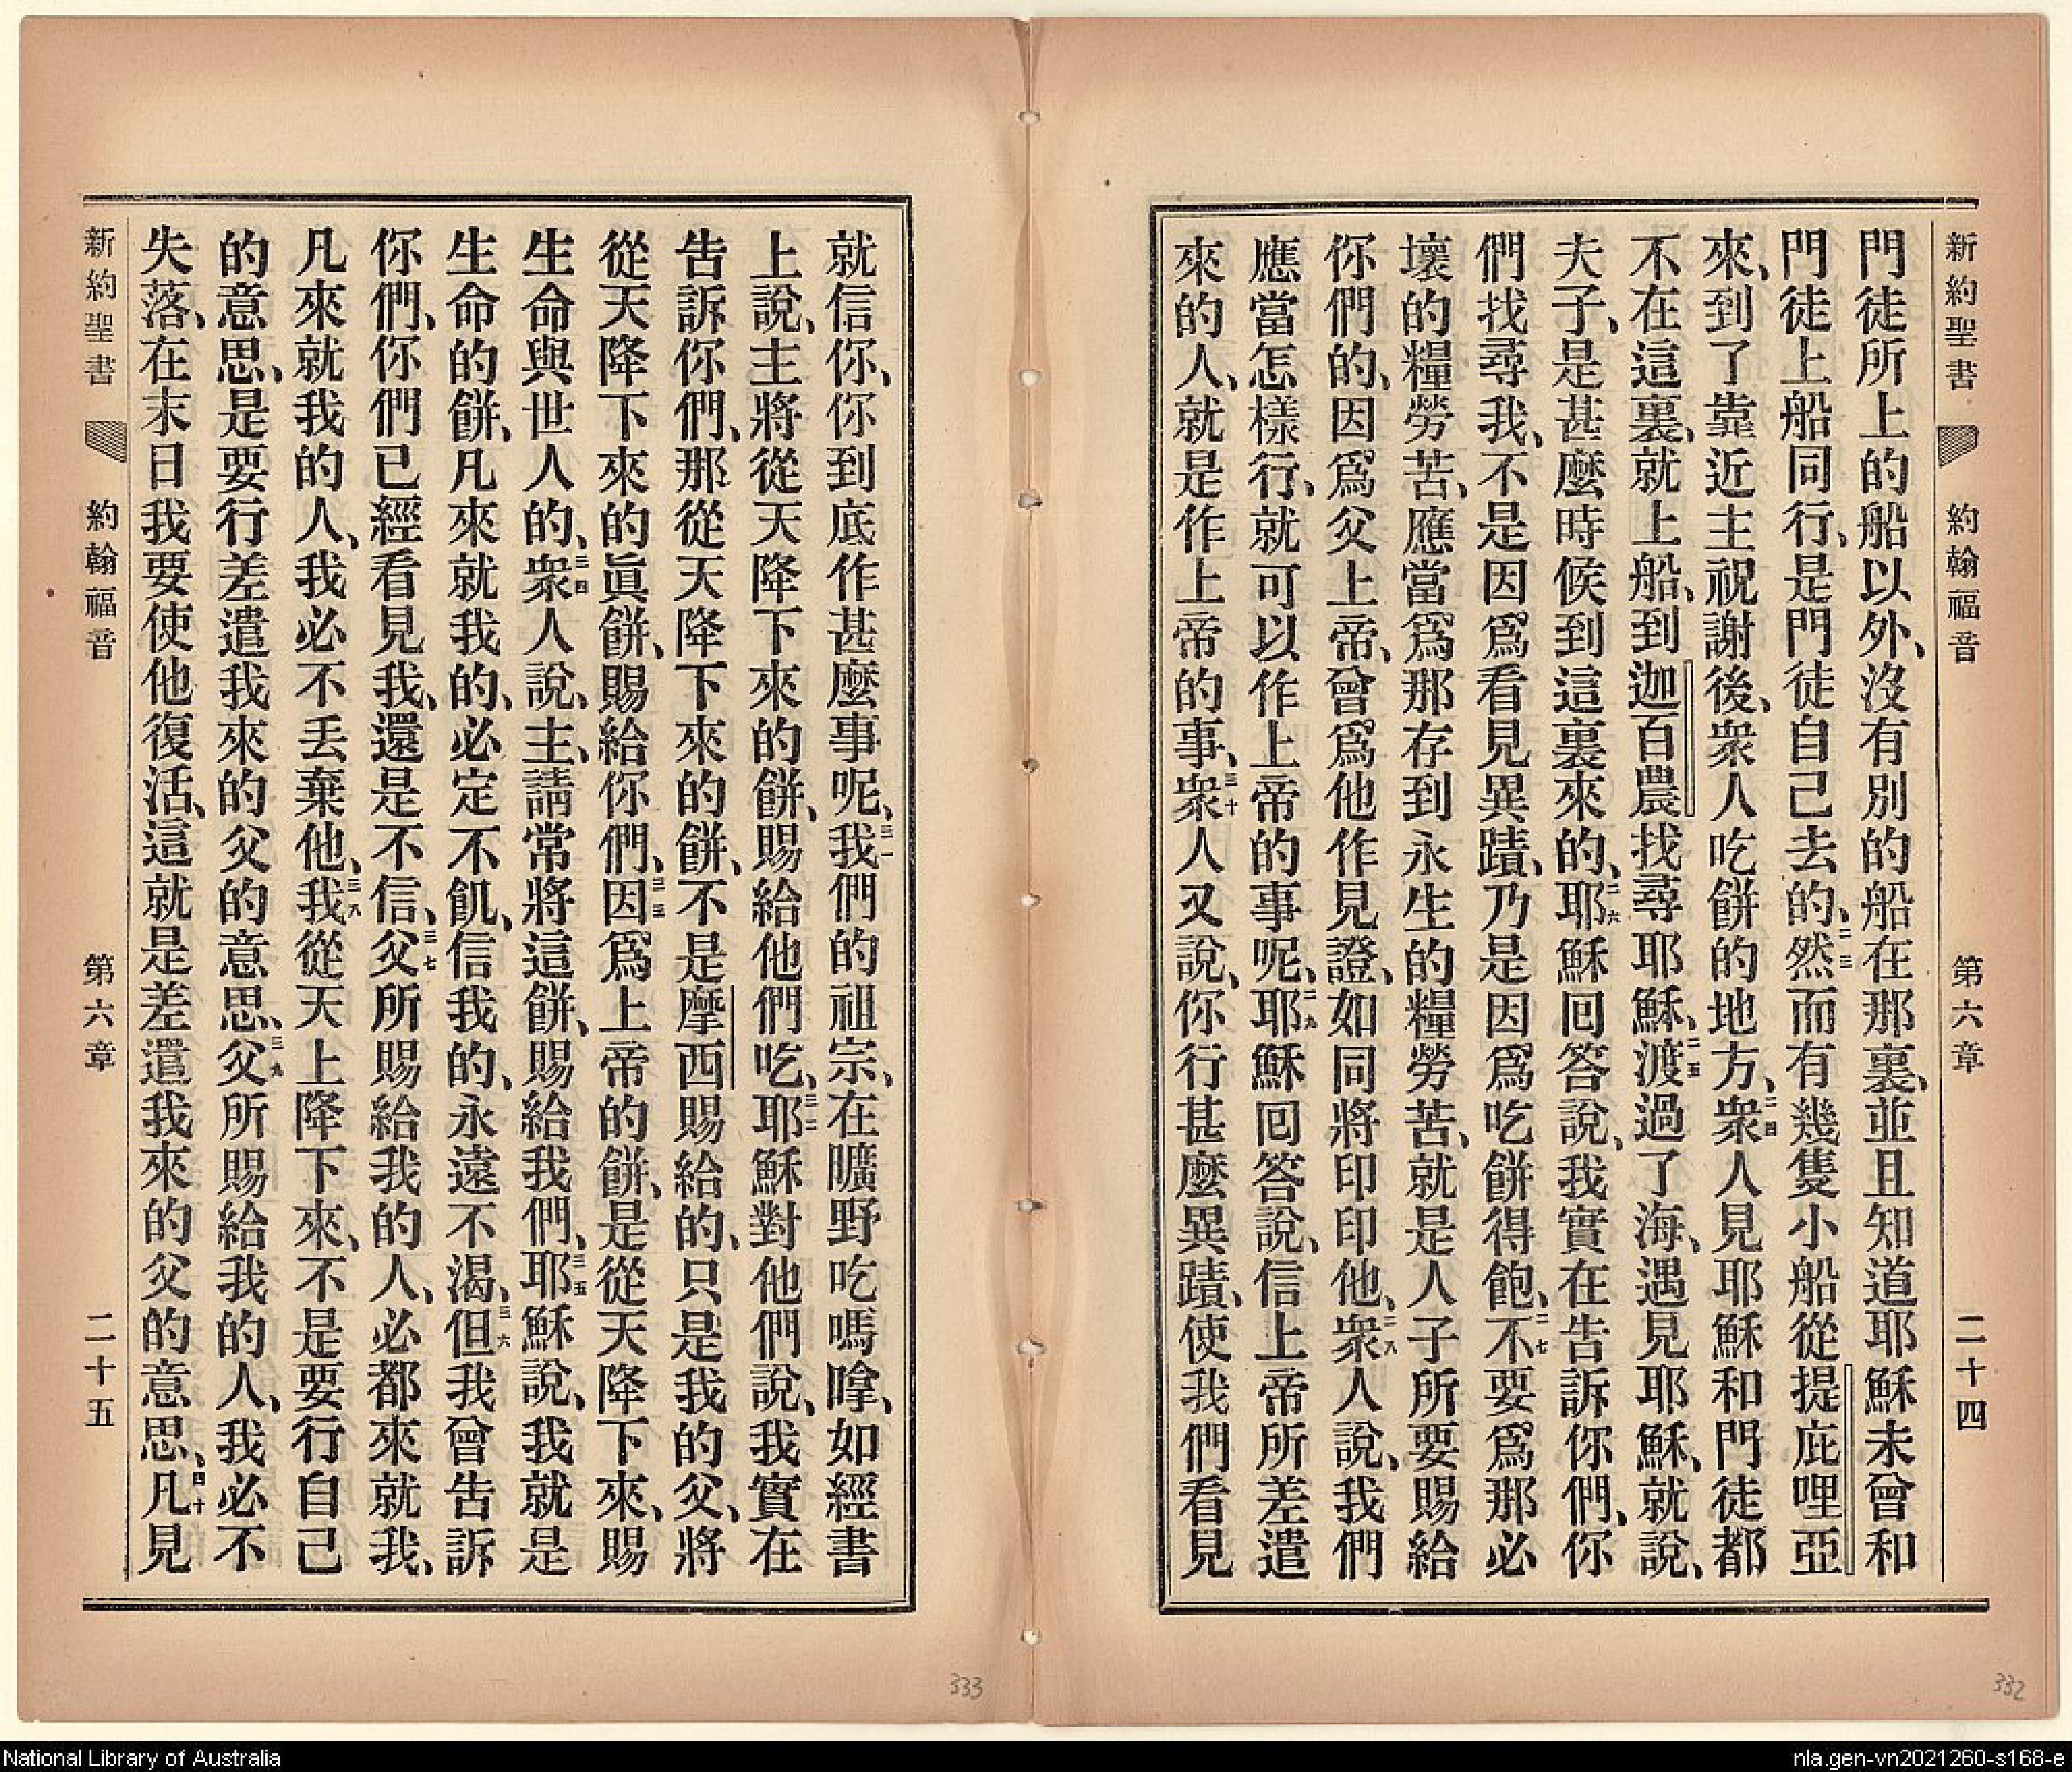 新約聖書 約翰福音 第六章 二十四
門徒所上的船以外、沒有別的船在那裏、並且知道耶穌未曾和
門徒上船同行、是門徒自己去的、二三然而有幾隻小船從提庇哩亞
來、到了靠近主祝謝後、衆人吃餅的地方、二四衆人見耶穌和門徒都
不在這裏、就上船、到迦百農找尋耶穌、二五渡過了海、遇見耶穌、就說、
夫子、是甚麽時候到這裏來的、二六耶穌回答說、我實在告訴你們、你
們找尋我、不是因爲看見異蹟、乃是因爲吃餅得飽、二七不要爲那必
壞的糧勞苦、應當爲那存到永生的糧勞苦、就是人子所要賜給
你們的、因爲父上帝、曾爲他作見證、如同將印印他、二八衆人說、我們
應當怎樣行、就可以作上帝的事呢、二九耶穌回答說、信上帝所差遣
來的人、就是作上帝的事、三十衆人又說、你行甚麽異蹟、使我們看見
就信你、你到底作甚麽事呢、三一我們的祖宗、在曠野吃嗎嗱、如經書
上說、主將從天降下來的餅、賜給他們吃、三二耶穌對他們說、我實在
告訴你們、那從天降下來的餅、不是摩西賜給的、只是我的父、將
從天降下來的眞餅、賜給你們、三三因爲上帝的餅、是從天降下來、賜
生命與世人的、三四衆人說、主、請常將這餅、賜給我們、三五耶穌說、我就是
生命的餅、凡來就我的、必定不飢、信我的、永遠不渴、三六但我曾告訴
你們、你們已經看見我、還是不信、三七父所賜給我的人、必都來就我、
凡來就我的人、我必不丟棄他、三八我從天上降下來、不是要行自己
的意思、是要行差遣我來的父的意思、三九父所賜給我的人、我必不
失落、在末日我要使他復活、這就是差遣我來的父的意思、四十凡見
新約聖書 約翰福音 第六章 二十五
333
332
National Library of Australia
nla.gen-vn2021260-s168-e